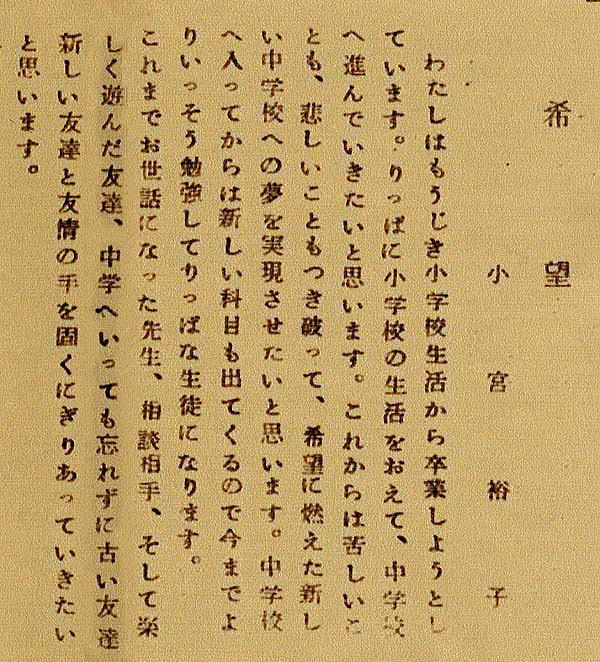 希望
小宮裕子
わたしはもうじき小学校生活から卒業しようとし
ています。りっぱに小学校の生活をおえて、中学校
へ進んでいきたいと思います。これからは苦しいこ
とも、悲しいこともつき破って、希望に燃えた新し
い中学校への夢を実現させたいと思います。中学校
へ入ってからは新しい科目も出てくるので今までよ
りいっそう勉強してりっぱな生徒になります。
これまでお世話になった先生、相談相手、そして楽
しく遊んだ友達、中学へいっても忘れずに古い友達
新しい友達と友情の手を固くにぎりあっていきたい
と思います。